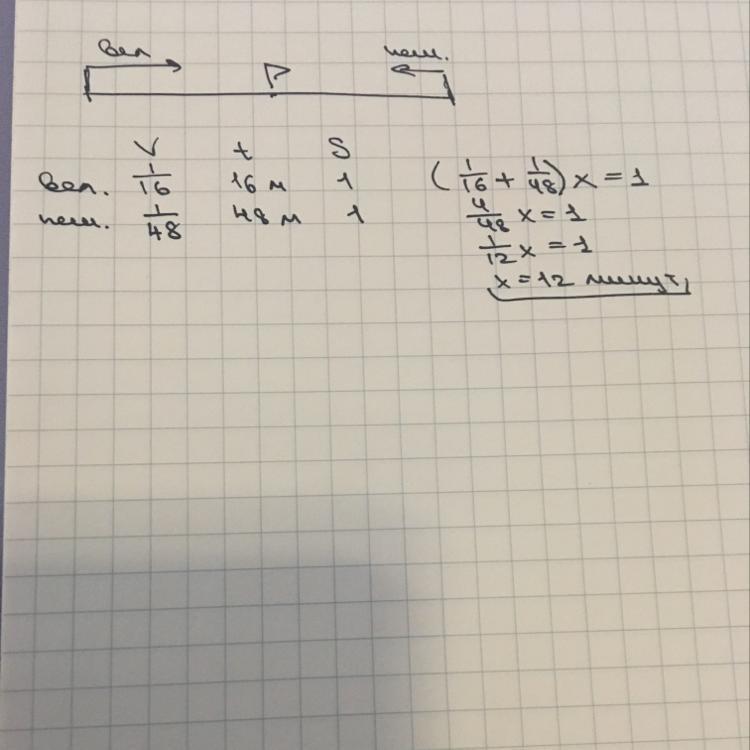 вел. пеш.
V t S
вел. 1/16 16 м 1
пеш. 1/48 48 м 1
(1/16 + 1/48) x = 1
4/48 x = 1
1/12 x = 1
x = 12 минут